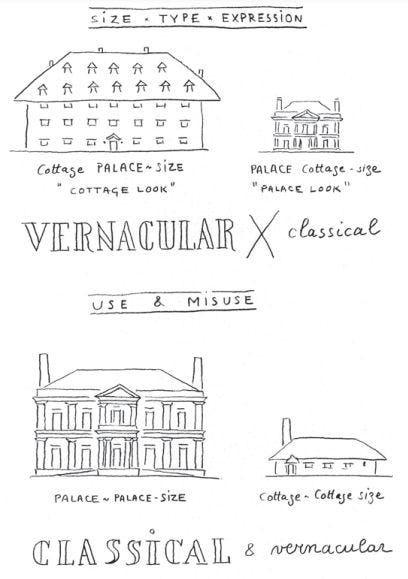 SIZE × TYPE × EXPRESSION
Cottage PALACE~SIZE
"COTTAGE LOOK"
PALACE Cottage-size
"PALACE LOOK"
VERNACULAR X classical
USE & MISUSE
PALACE~PALACE-SIZE
Cottage~Cottage size
CLASSICAL & vernacular